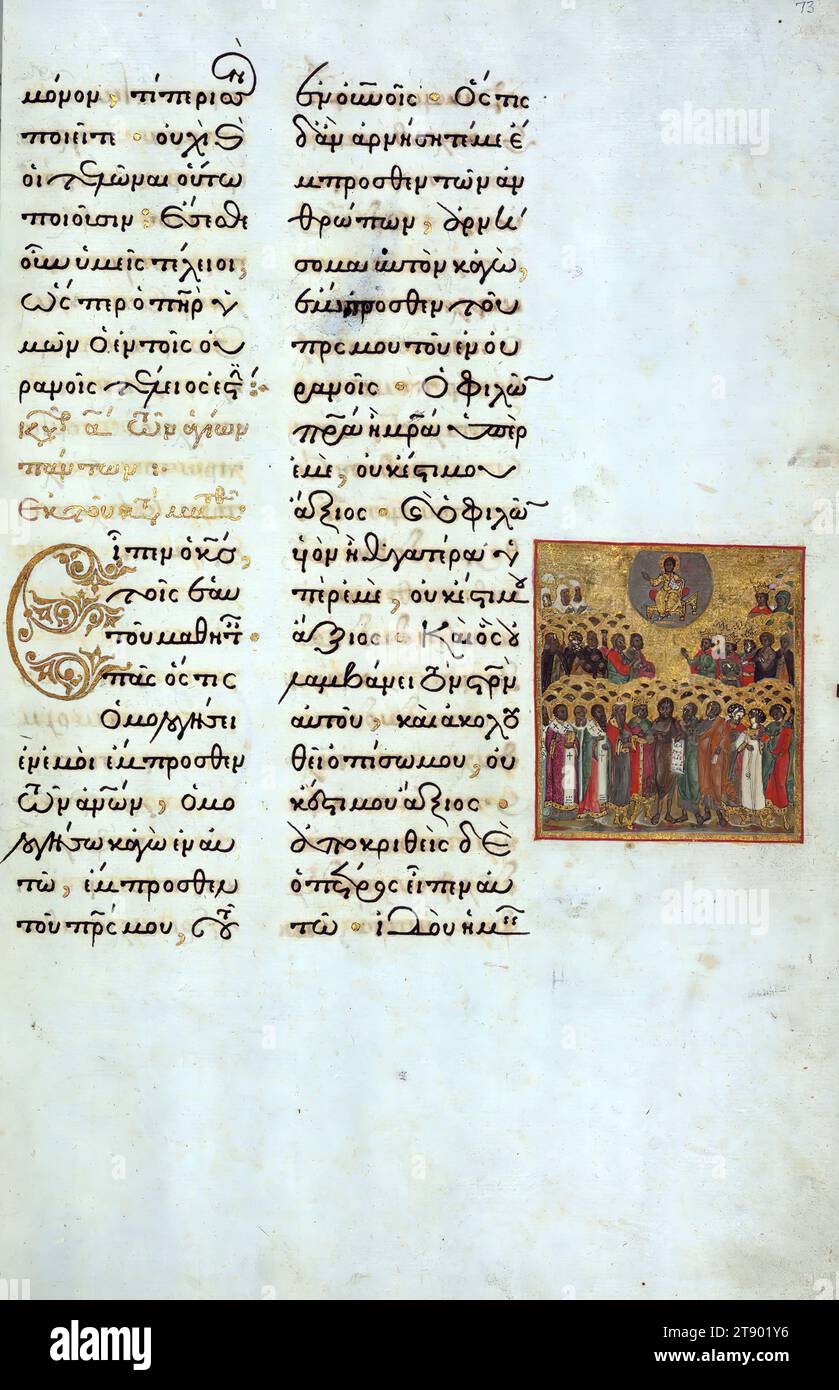 73
μόνον, τί περισσὸν
ποιεῖτε· οὐχὶ ἐ
οἱ τελῶναι οὕτω
ποιοῦσιν: Ἔσεσθε
οὖν ὑμεῖς τέλειοι,
ὥσπερ ὁ πηρ ὑ
μῶν ὁ ἐν τοῖς οὐ
ρανοῖς τέλειός ἐστ:
Κυρ α τῶν ἁγίων
πάντων:
Ἐκ τοῦ κατὰ ματθ
Εἶπεν ὁ κς,
τοῖς ἑαυ
τοῦ μαθητ·
πᾶς ὅστις
ὁμολογήσει
ἐν ἐμοὶ ἔμπροσθεν
τῶν ἀνων, ὁμο
λογήσω κἀγὼ ἐν αυ
τῶ, ἔμπροσθεν
τοῦ πρς μου, τοῦ
ἐν οὐνοῖς· Ὅστις
δ' ἂν ἀρνήσηταί με ἔ
μπροσθεν τῶν ἀν
θρώπων, ἀρνή
σομαι αὐτὸν κἀγὼ,
ἔμπροσθεν τοῦ
πρς μου τοῦ ἐν οὐ
ρανοῖς· Ὁ φιλῶν
πρα ἢ μρα ὑπὲρ
ἐμὲ, οὐκ ἔστι μου
ἄξιος· Καὶ ὁ φιλῶν
υἱὸν ἢ θυγατέρα ὑ
πὲρ ἐμὲ, οὐκ ἔστι μου
ἄξιος· Καὶ ὃς οὐ
λαμβάνει τὸν στρν
αὐτοῦ, καὶ ἀκολου
θεῖ ὀπίσω μου, οὐ
κ ἔστι μου ἄξιος·
ἀποκριθεὶς δὲ
ὁ πέτρος εἶπεν αὐ
τῶ· ἰδοὺ ἡμεῖς
alamy
alamy
Image ID: 2T901Y6
www.alamy.com